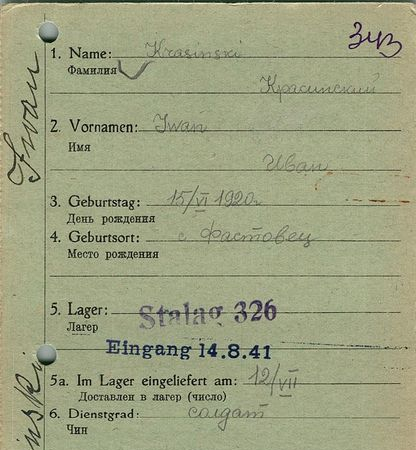 343
1. Name: Krasinski
Фамилия
Красинский
2. Vornamen: Iwan
Имя
Иван
3. Geburtstag: 15/VI 1920г
День рождения
4. Geburtsort: с. Фастовец
Место рождения
5. Lager: Stalag 326
Лагер
Eingang 14.8.41
5a. Im Lager eingeliefert am: 12/VII
Доставлен в лагер (число)
6. Dienstgrad: солдат
Чин
Iwan
inski